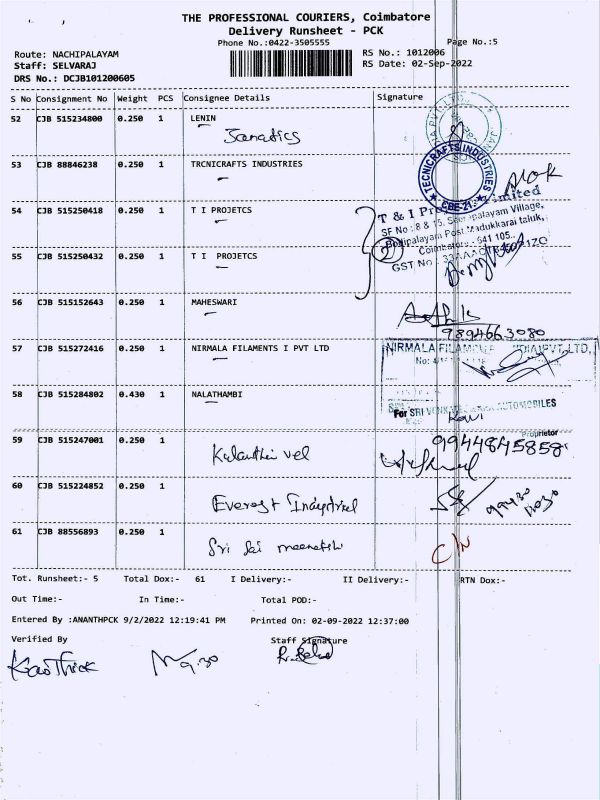 THE PROFESSIONAL COURIERS, Coimbatore
Delivery Runsheet - PCK
Phone No.:0422-3505555
Page No.:5
Route: NACHIPALAYAM
RS No.: 1012006
Staff: SELVARAJ
RS Date: 02-Sep-2022
DRS No.: DCJB101200605
S No Consignment No Weight PCS Consignee Details Signature
52 CJB 515234800 0.250 1 LENIN
Janatics
53 CJB 88846238 0.250 1 TRCNICRAFTS INDUSTRIES
TECNICRAFTS INDUSTRIES
CBE-21
Alok
54 CJB 515250418 0.250 1 T I PROJETCS
T & I Limited
SF No : 8 & 15, palayam Village,
palayam Post, Madukkarai taluk,
Coimbatore - 641 105.
55 CJB 515250432 0.250 1 T I PROJETCS
2
GST No
56 CJB 515152643 0.250 1 MAHESWARI
9894663080
57 CJB 515272416 0.250 1 NIRMALA FILAMENTS I PVT LTD
NIRMALA PVT. LTD.,
No:
58 CJB 515284802 0.430 1 NALATHAMBI
For SRI AUTOMOBILES
Proprietor
59 CJB 515247001 0.250 1
Kulanthai vel
9944845858
60 CJB 515224852 0.250 1
Everest Industrial
61 CJB 88556893 0.250 1
Sri Sai meenatchi
Tot. Runsheet:- 5 Total Dox:- 61 I Delivery:- II Delivery:- RTN Dox:-
Out Time:- In Time:- Total POD:-
Entered By :ANANTHPCK 9/2/2022 12:19:41 PM Printed On: 02-09-2022 12:37:00
Verified By Staff Signature
Kaothick
9.30